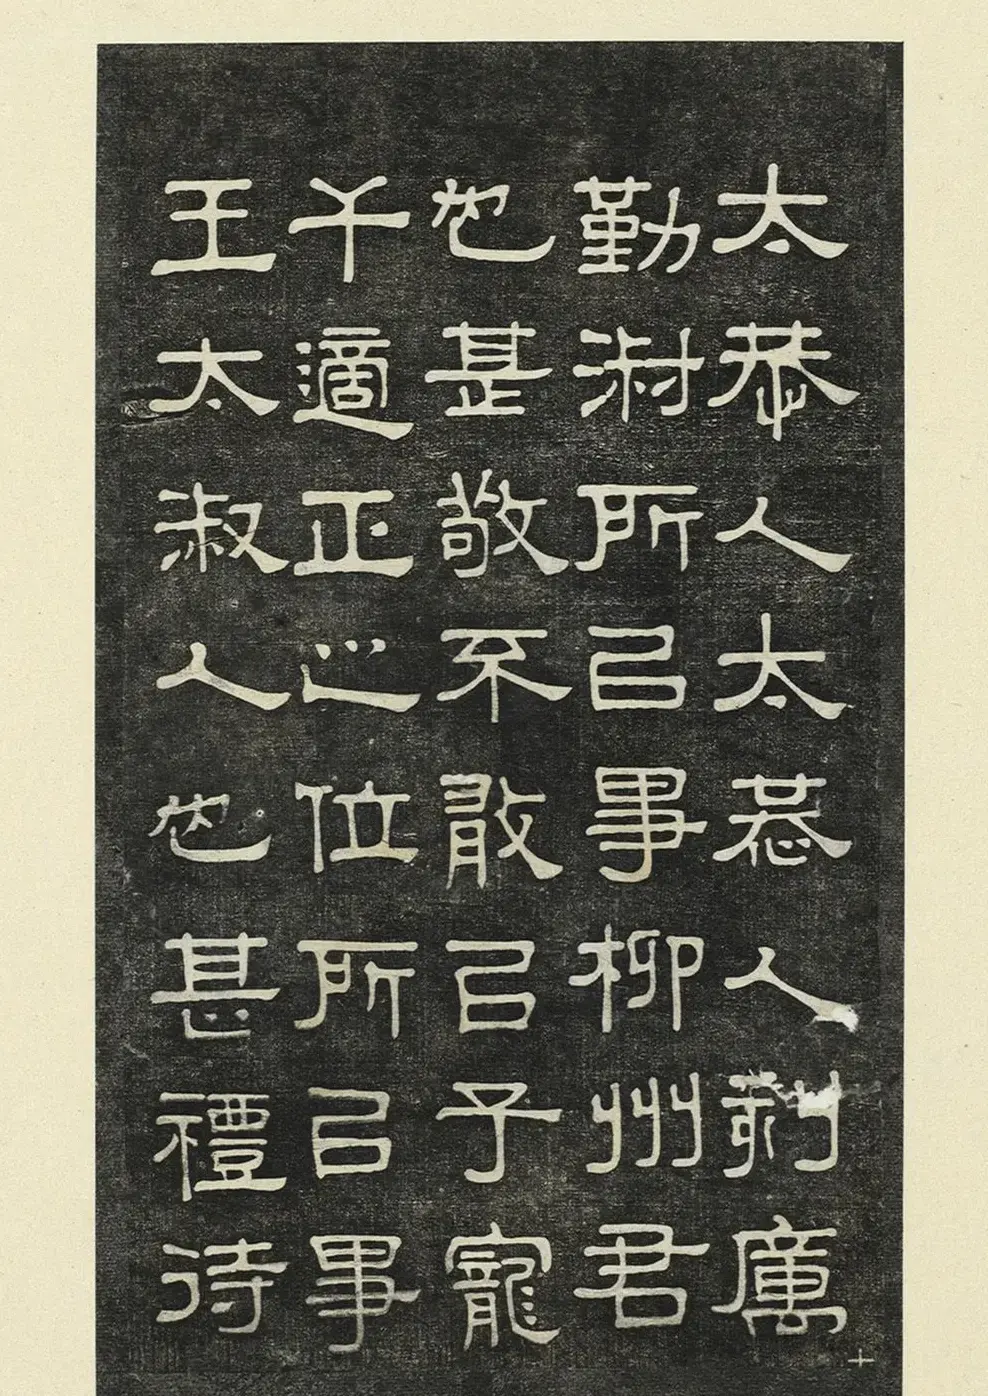 太恭人太恭人刻厲
勤淑所㠯事柳州君
也甚敬不敢㠯子寵
干適正之位所㠯事
王太淑人也甚禮待
十